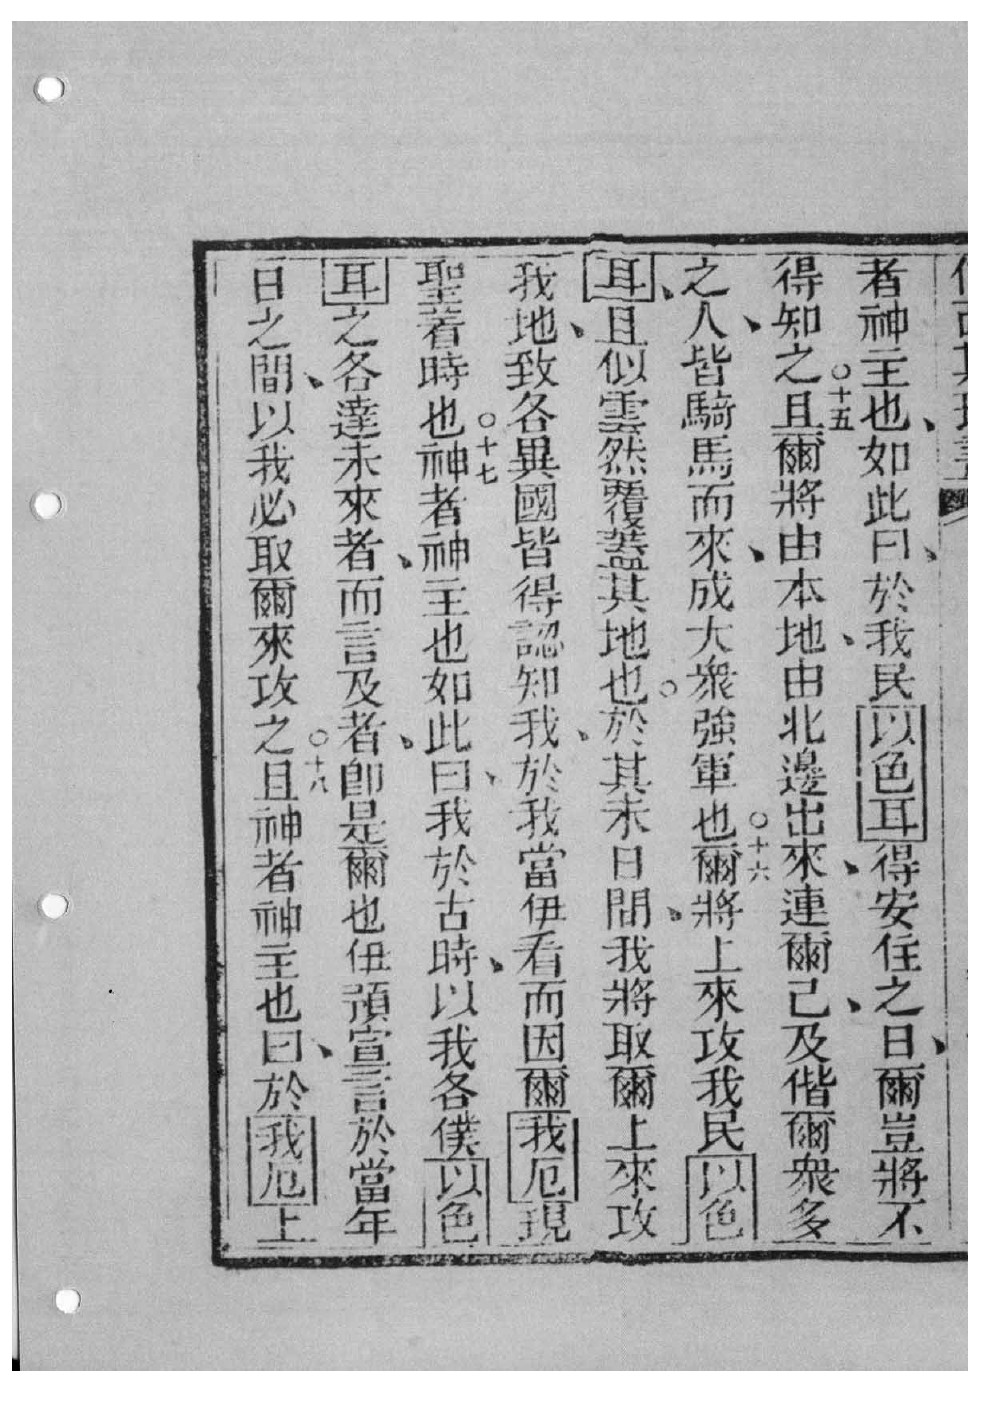 者神主也如此曰於我民以色耳得安住之日爾豈將不
得知之○十五且爾將由本地由北邊出來連爾己及偕爾衆多
之人皆騎馬而來成大衆強軍也○十六爾將上來攻我民以色
耳且似雲然覆蓋其地也○於其末日間我將取爾上來攻
我地致各異國皆得認知我於我當伊看而因爾我厄現
聖着時也○十七神者神主也如此曰我於古時以我各僕以色
耳之各達未來者而言及者卽是爾也伊預宣言於當年
日之間以我必取爾來攻之○十八且神者神主也曰於我厄上